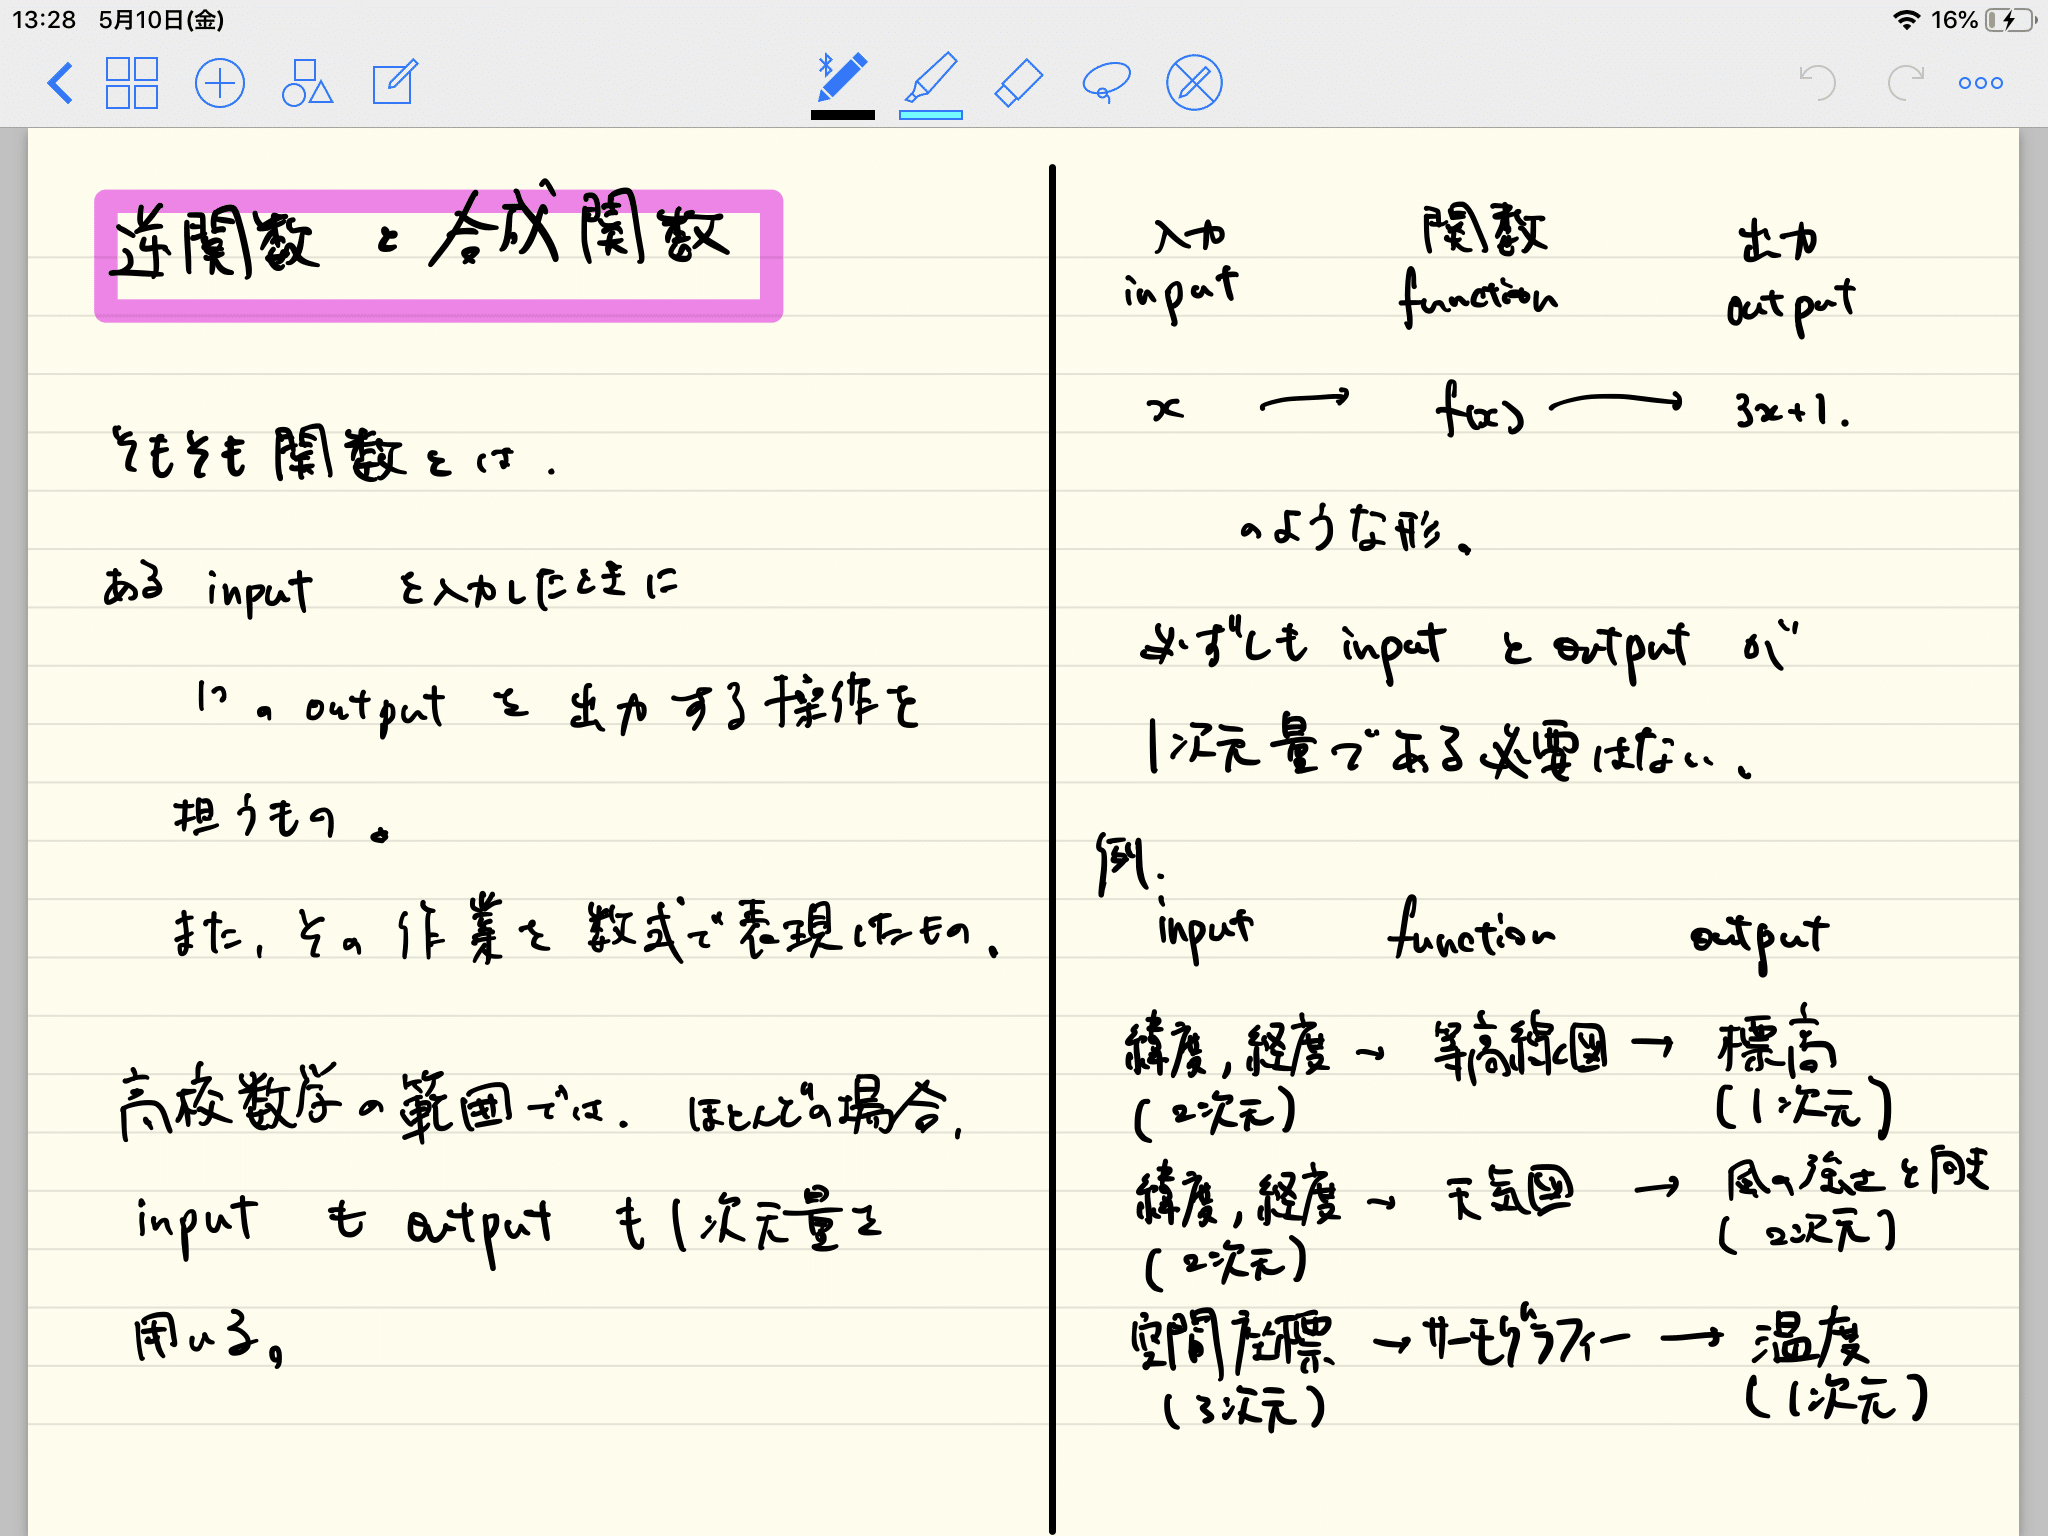 13:28 5月10日(金)
16%
逆関数 と 合成関数
そもそも関数とは.
ある input を入力したときに
1つの output を 出力する操作を
担うもの。
また, その 作業を 数式で表現したもの.
高校数学の範囲では. ほとんどの場合,
input も output も1次元量を
用いる。
入力 関数 出力
input function output
x → f(x) → 3x+1.
のような形.
必ずしも input と output が
1次元量である必要はない.
例.
input function output
緯度, 経度 → 等高線図 → 標高
(2次元) (1次元)
緯度, 経度 → 天気図 → 風の強さと向き
(2次元) (2次元)
空間座標 → サーモグラフィー → 温度
(3次元) (1次元)